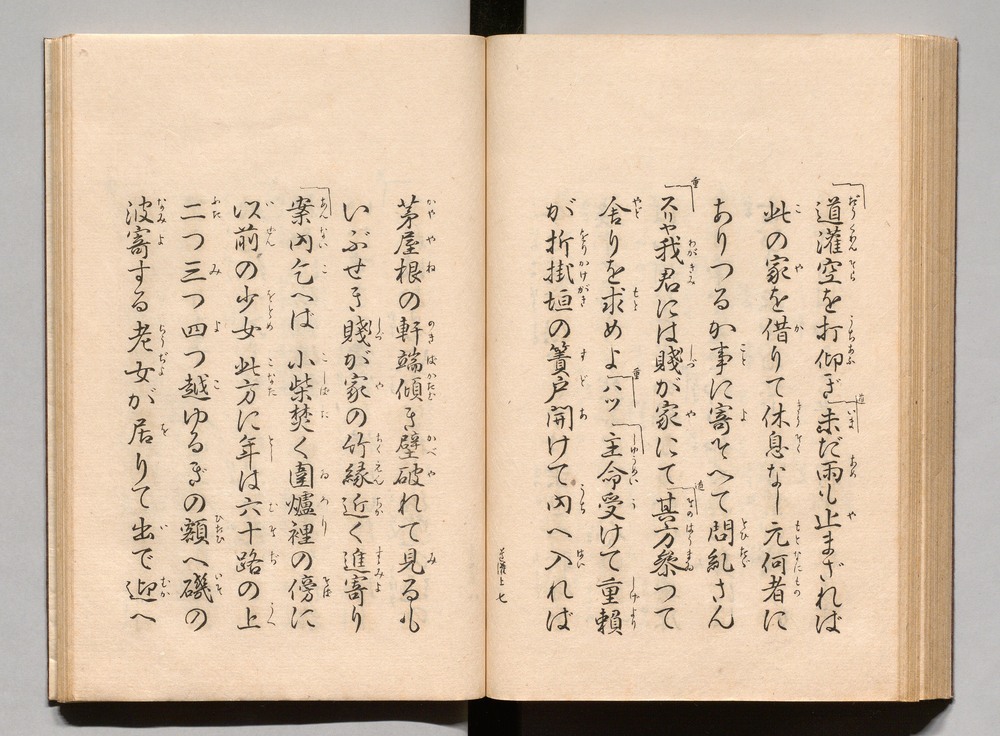 道灌空を打仰ぎ未だ雨も止まざれば
此の家を借りて休息なし元何者に
ありつるか事に寄そへて問糺さん
スリや我君には賤が家にて其方參つて
舎りを求めよハッ主命受けて重頼
が折掛垣の簀戸開けて内へ入れば
道灌上 七
茅屋根の軒端傾き壁破れて見るも
いぶせき賤が家の竹縁近く進寄り
案内乞へは小柴焚く圍爐裡の傍に
以前の少女此方に年は六十路の上
二つ三つ四つ越ゆるぎの額へ磯の
波寄する老女が居りて出で迎へ